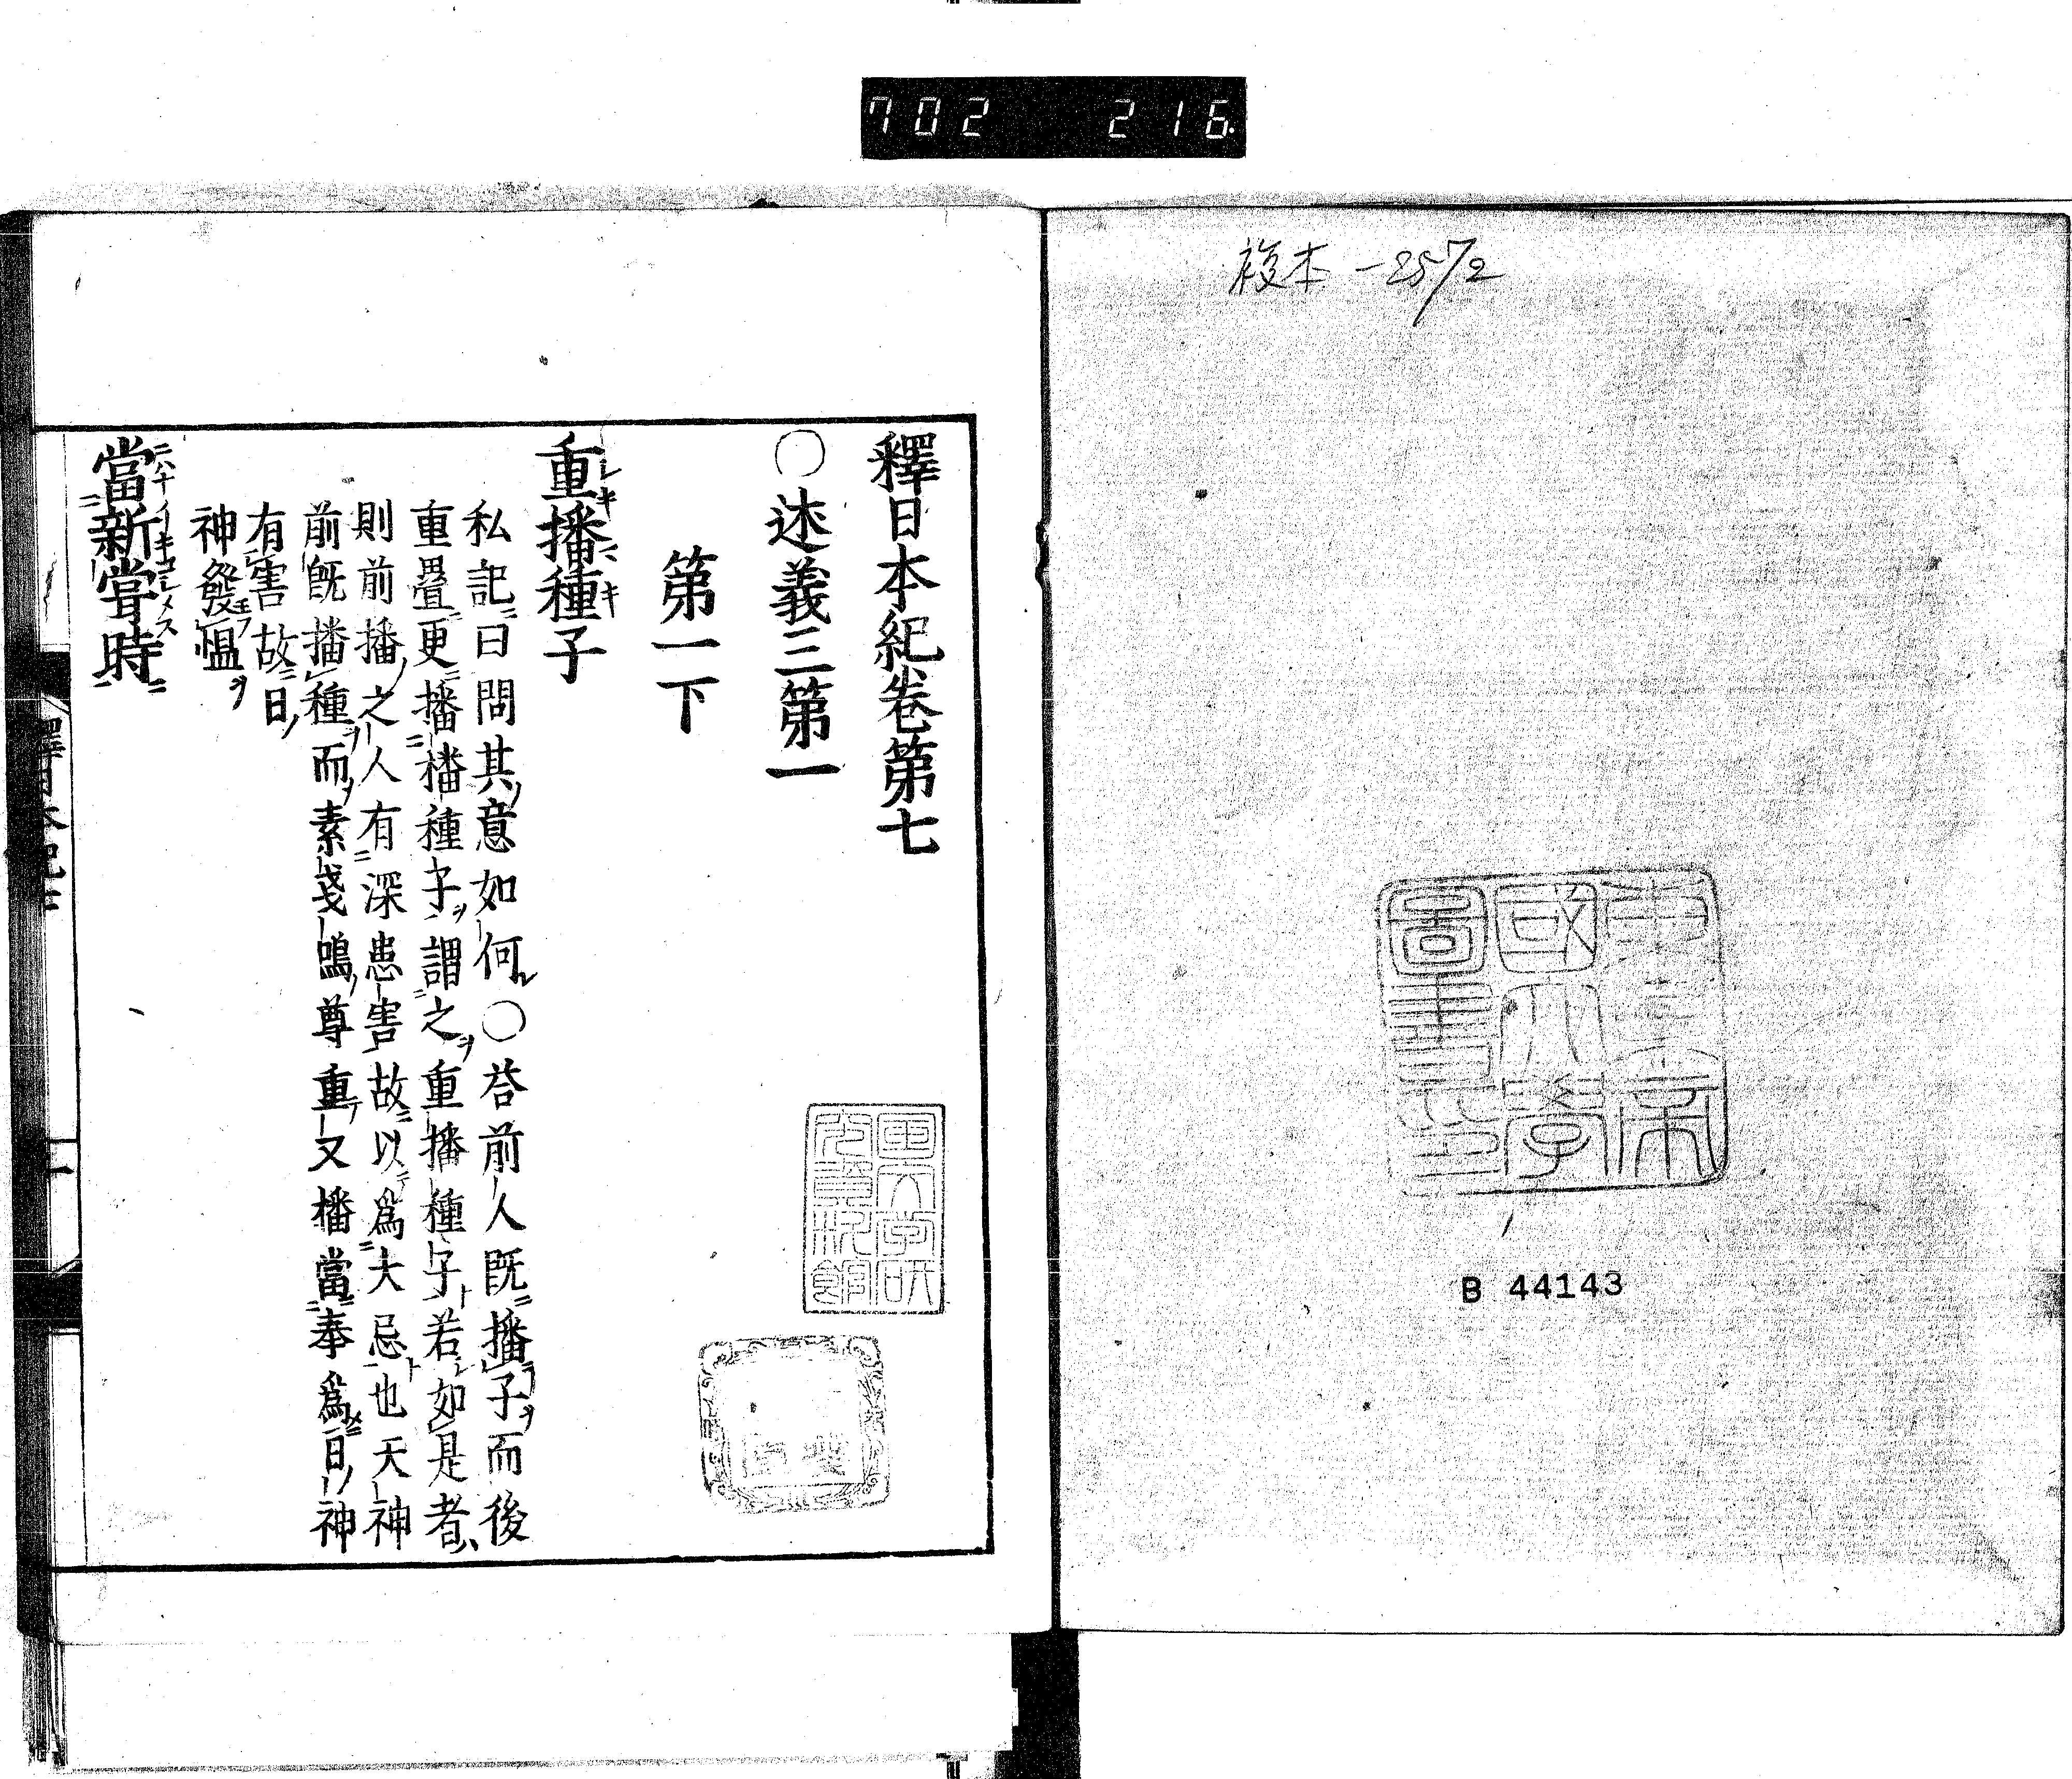 702 216
複本 -2572
B 44143
釋日本紀卷第七
○述義三第一
第一下
重播種子
私記曰問其意如何○荅前人既播子而後
重疊更播播種子謂之重播種子若如是者
則前播之人有深患害故以爲大忌也天神
前既播種而素戔嗚尊重又播當奉爲日神
有害故日
神發慍
當新嘗時